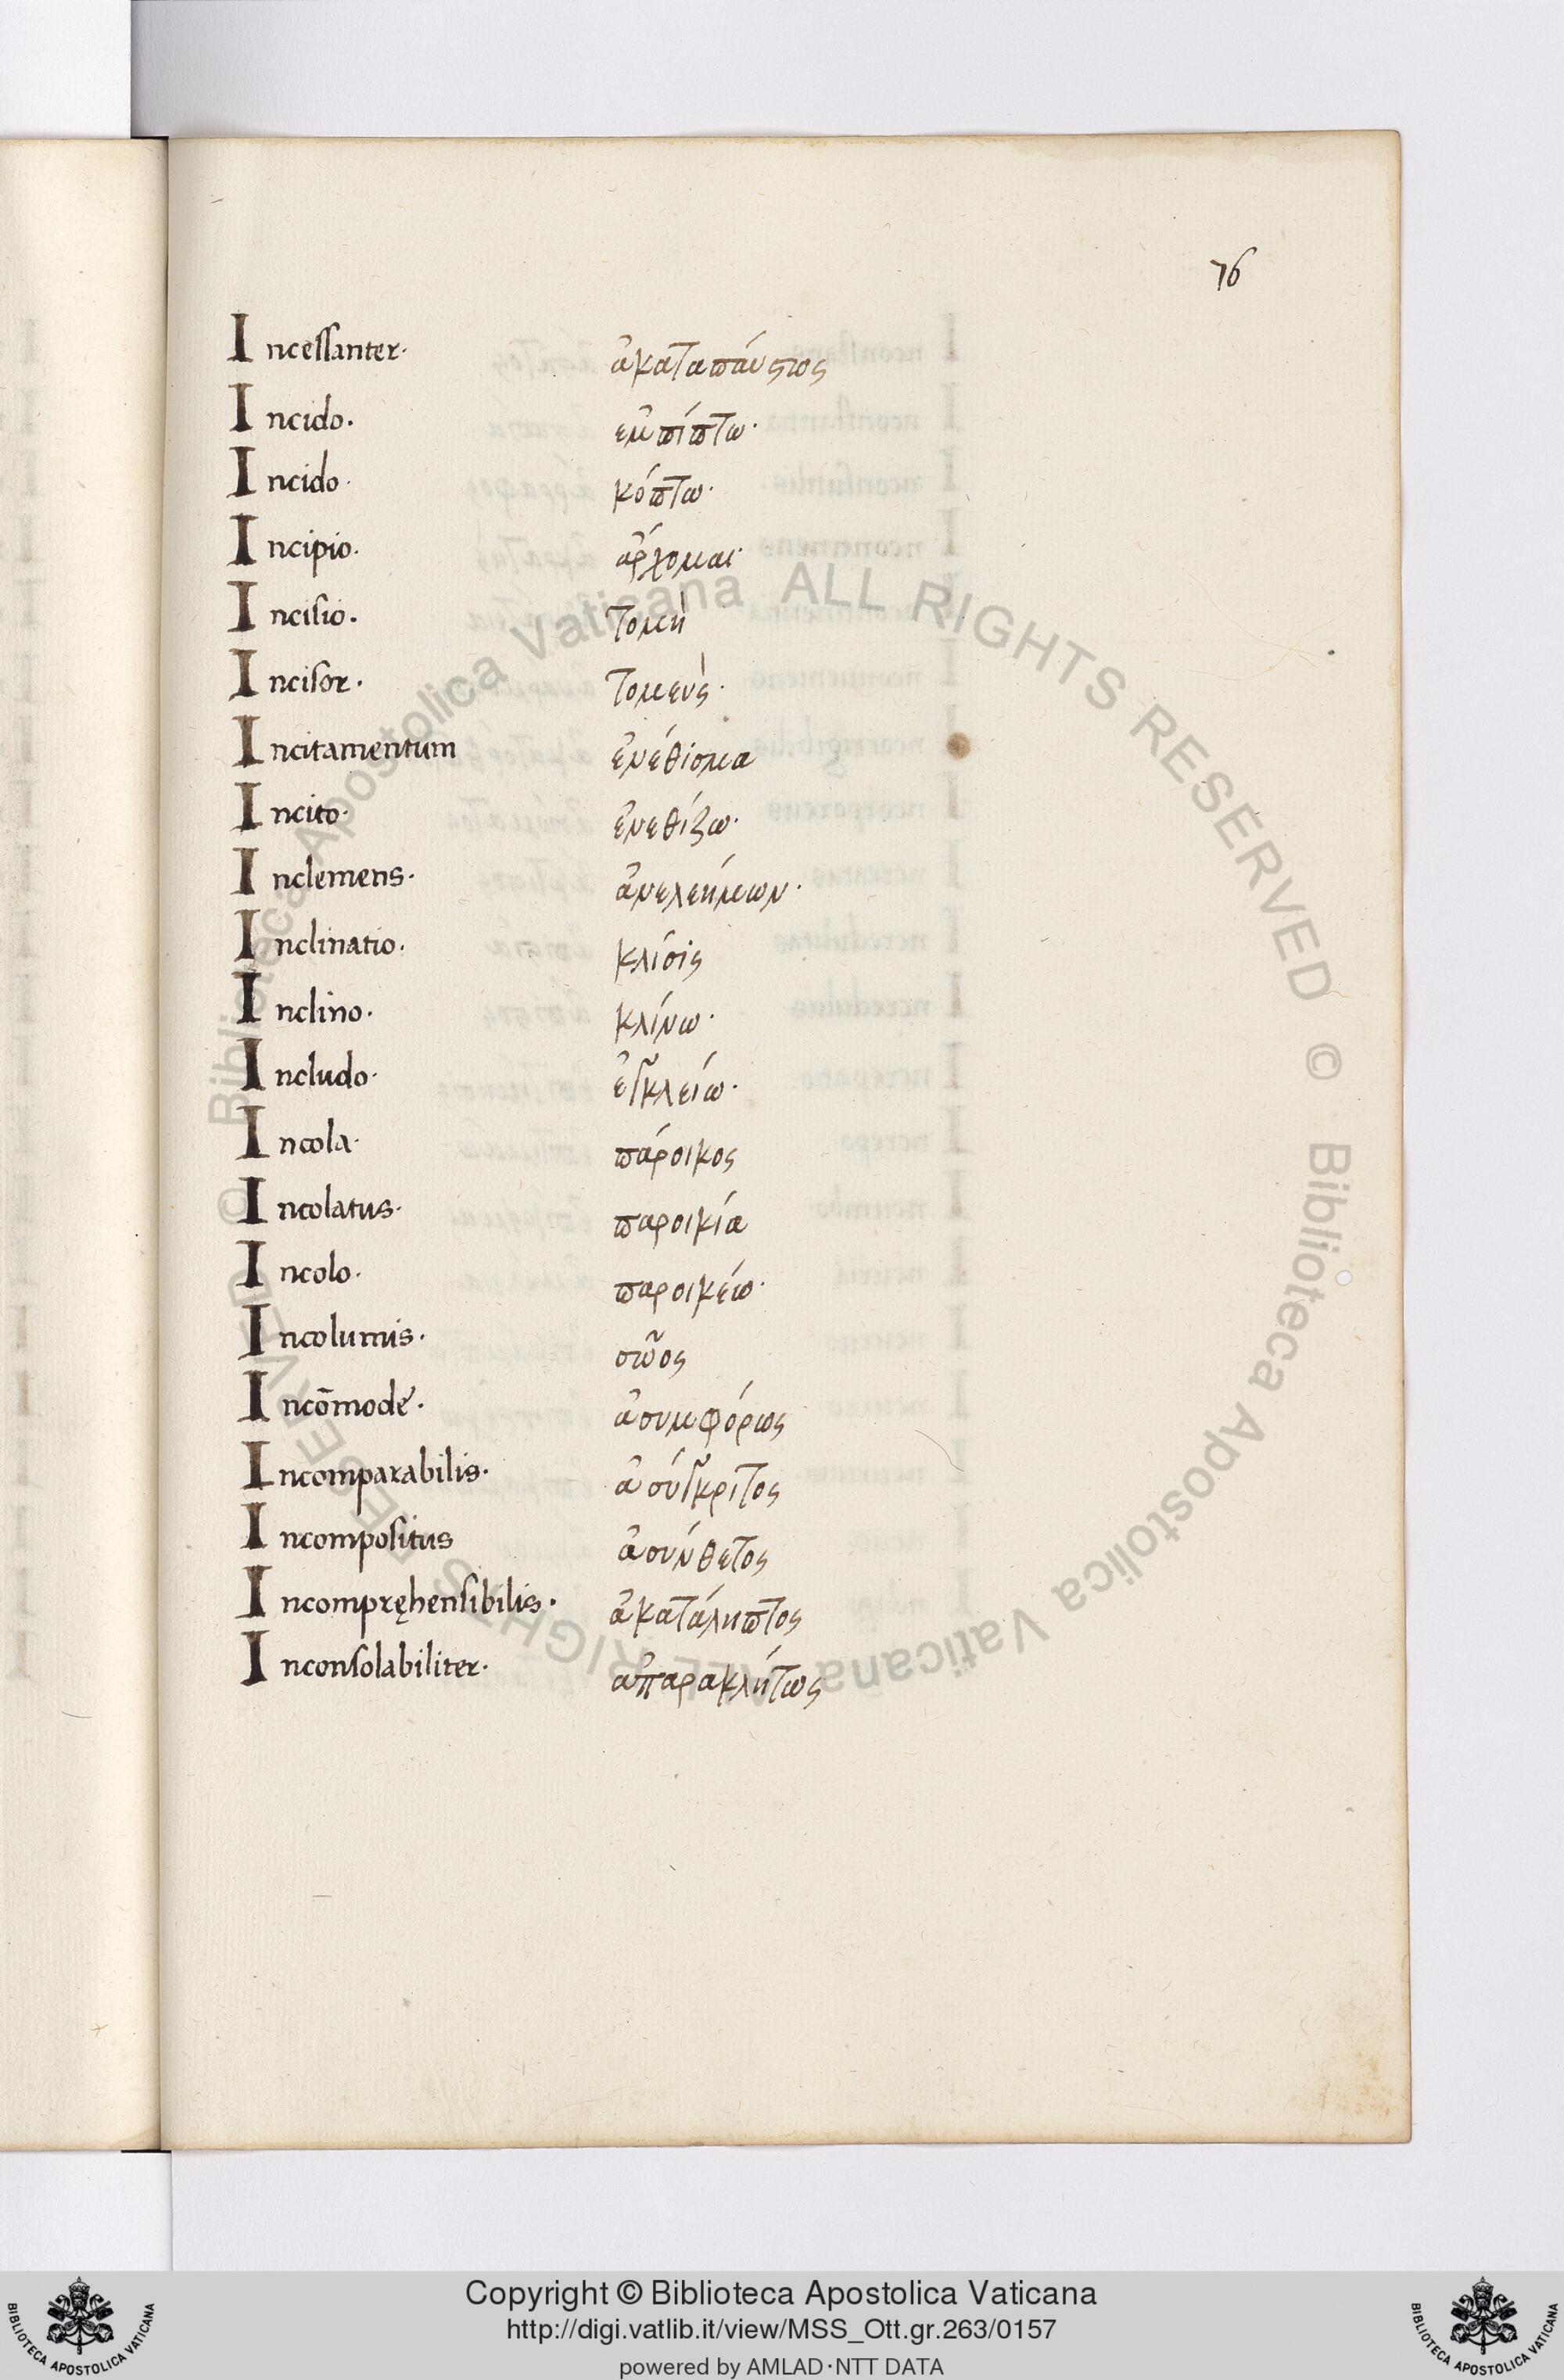 76
Incessanter· ἀκαταπάυστως
Incido· ἐμπίπτω·
Incido· κόπτω·
Incipio· ἄρχομαι·
Incisio· Τομὴ
Incisor· Τομεὺς·
Incitamentum ἐνέθισμα
Incito· ἐνεθίζω·
Inclemens· ἀνελεήμων·
Inclinatio· κλίσις
Inclino· κλίνω·
Includo· ἐγκλείω·
Incola· πάροικος
Incolatus· παροικία
Incolo· παροικέω·
Incolumis· σῶος
Incōmode· ἀσυμφόρως
Incomparabilis· ἀσύγκριτος
Incompositus ἀσύνθετος
Incompręhensibilis· ἀκατάληπτος
Inconsolabiliter· ἀπαρακλήτως
© Biblioteca Apostolica Vaticana ALL RIGHTS RESERVED © Biblioteca Apostolica Vaticana ALL RIGHTS RESERVED
Copyright © Biblioteca Apostolica Vaticana
http://digi.vatlib.it/view/MSS_Ott.gr.263/0157
powered by AMLAD·NTT DATA
BIBLIOTECA APOSTOLICA VATICANA
BIBLIOTECA APOSTOLICA VATICANA